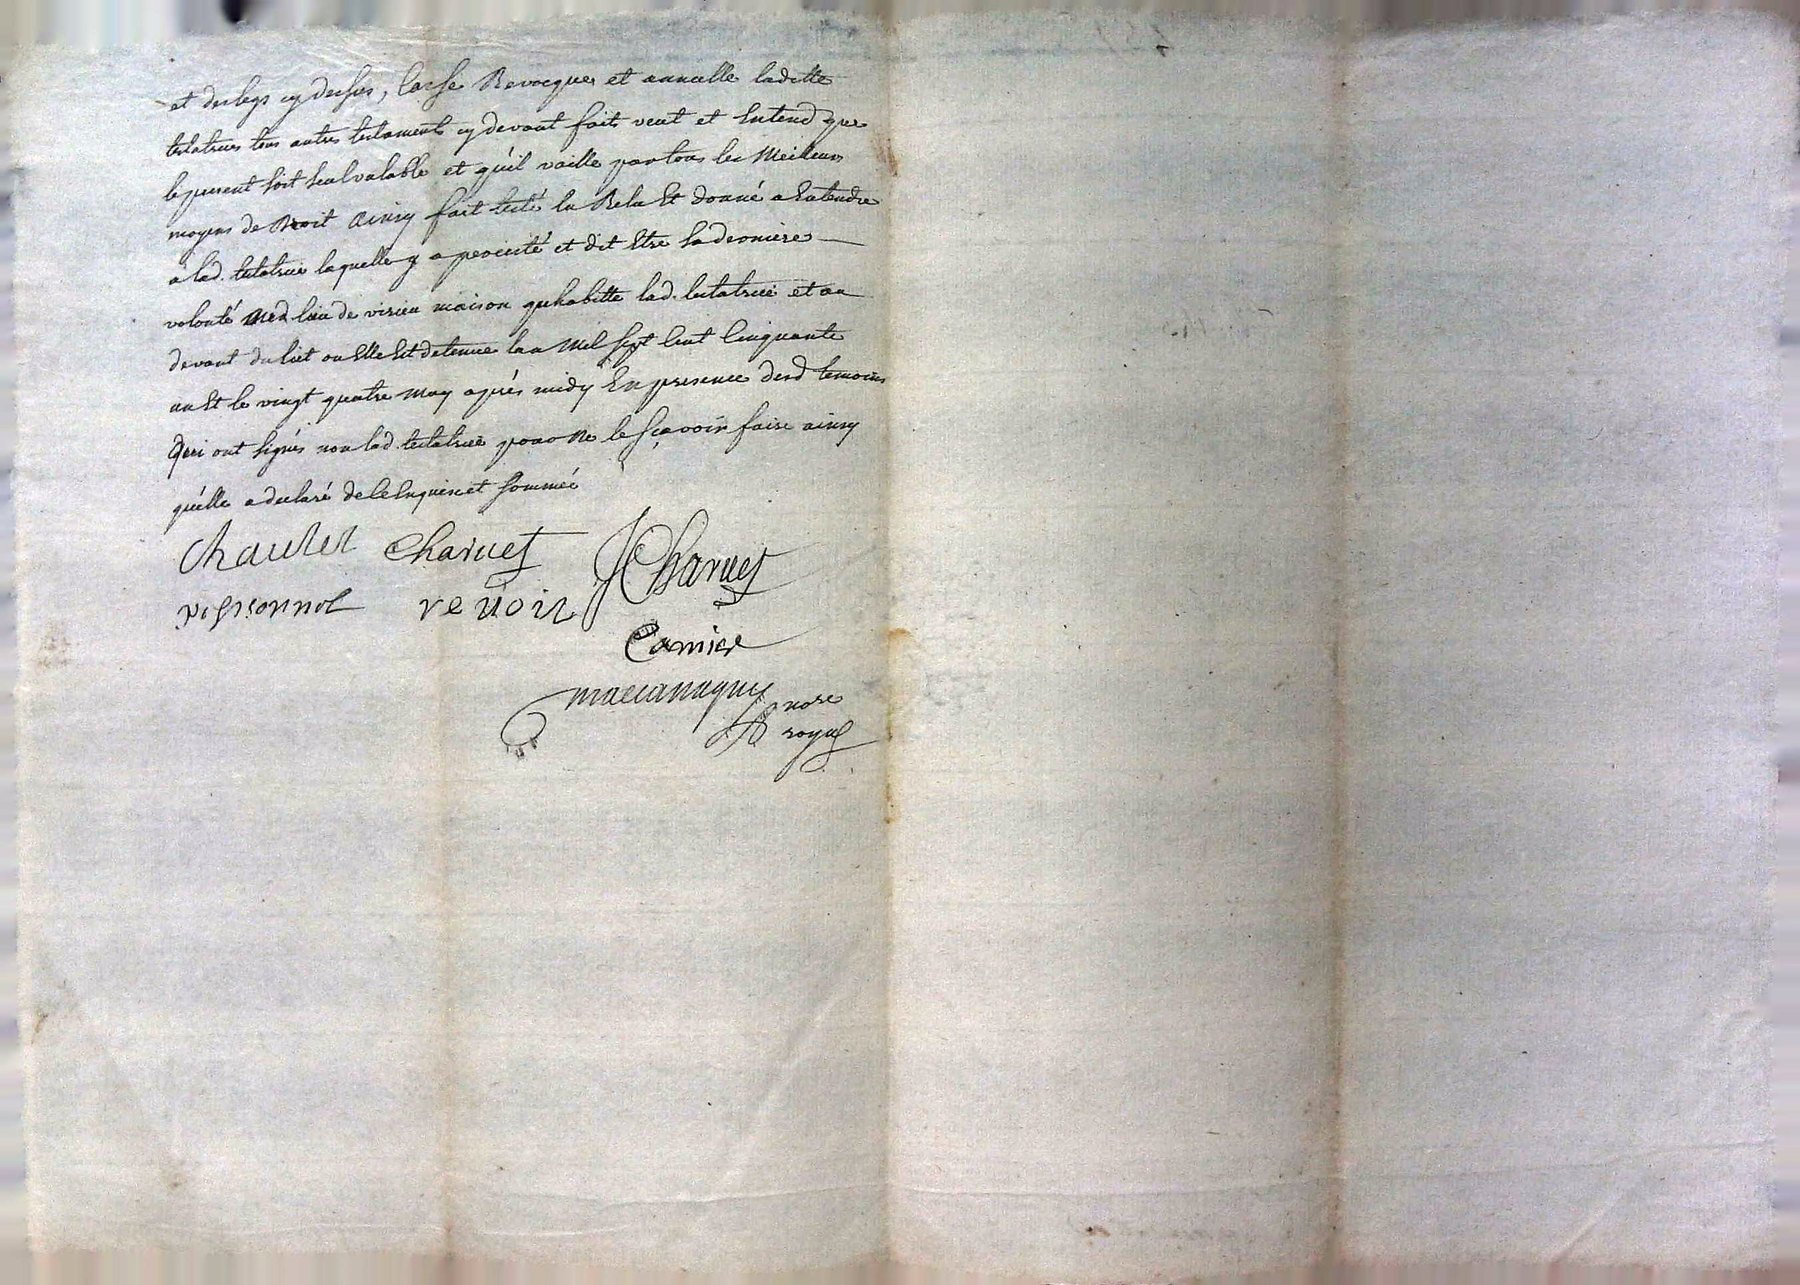 et des legs cy dessus, Casse Revocque et annulle laditte
testatrice tous autres testaments cy devant faits veut et Entend que
le present soit seul valable et qu'il vaille par tous les Meilleurs
moyens de Droit Ainsy fait testé lu Relu Et donné a Entendre
a lad. testatrice laquelle y a persisté et dit Etre sa derniere
volonté aud. lieu de virieu maison qu'habitte lad. testatrice et au
devant du lit ou Elle Est detenue lan Mil sept Cent Cinquante
un Et le vingt quatre May après midy En presence desd temoins
Qui ont signés non lad. testatrice pour Ne le sçavoir faire ainsy
qu'elle a declaré de ce Enquise et sommée
Charvet Charuet JCharuet
peyssonnol renoir
Camier
maccanaguy nore
royal